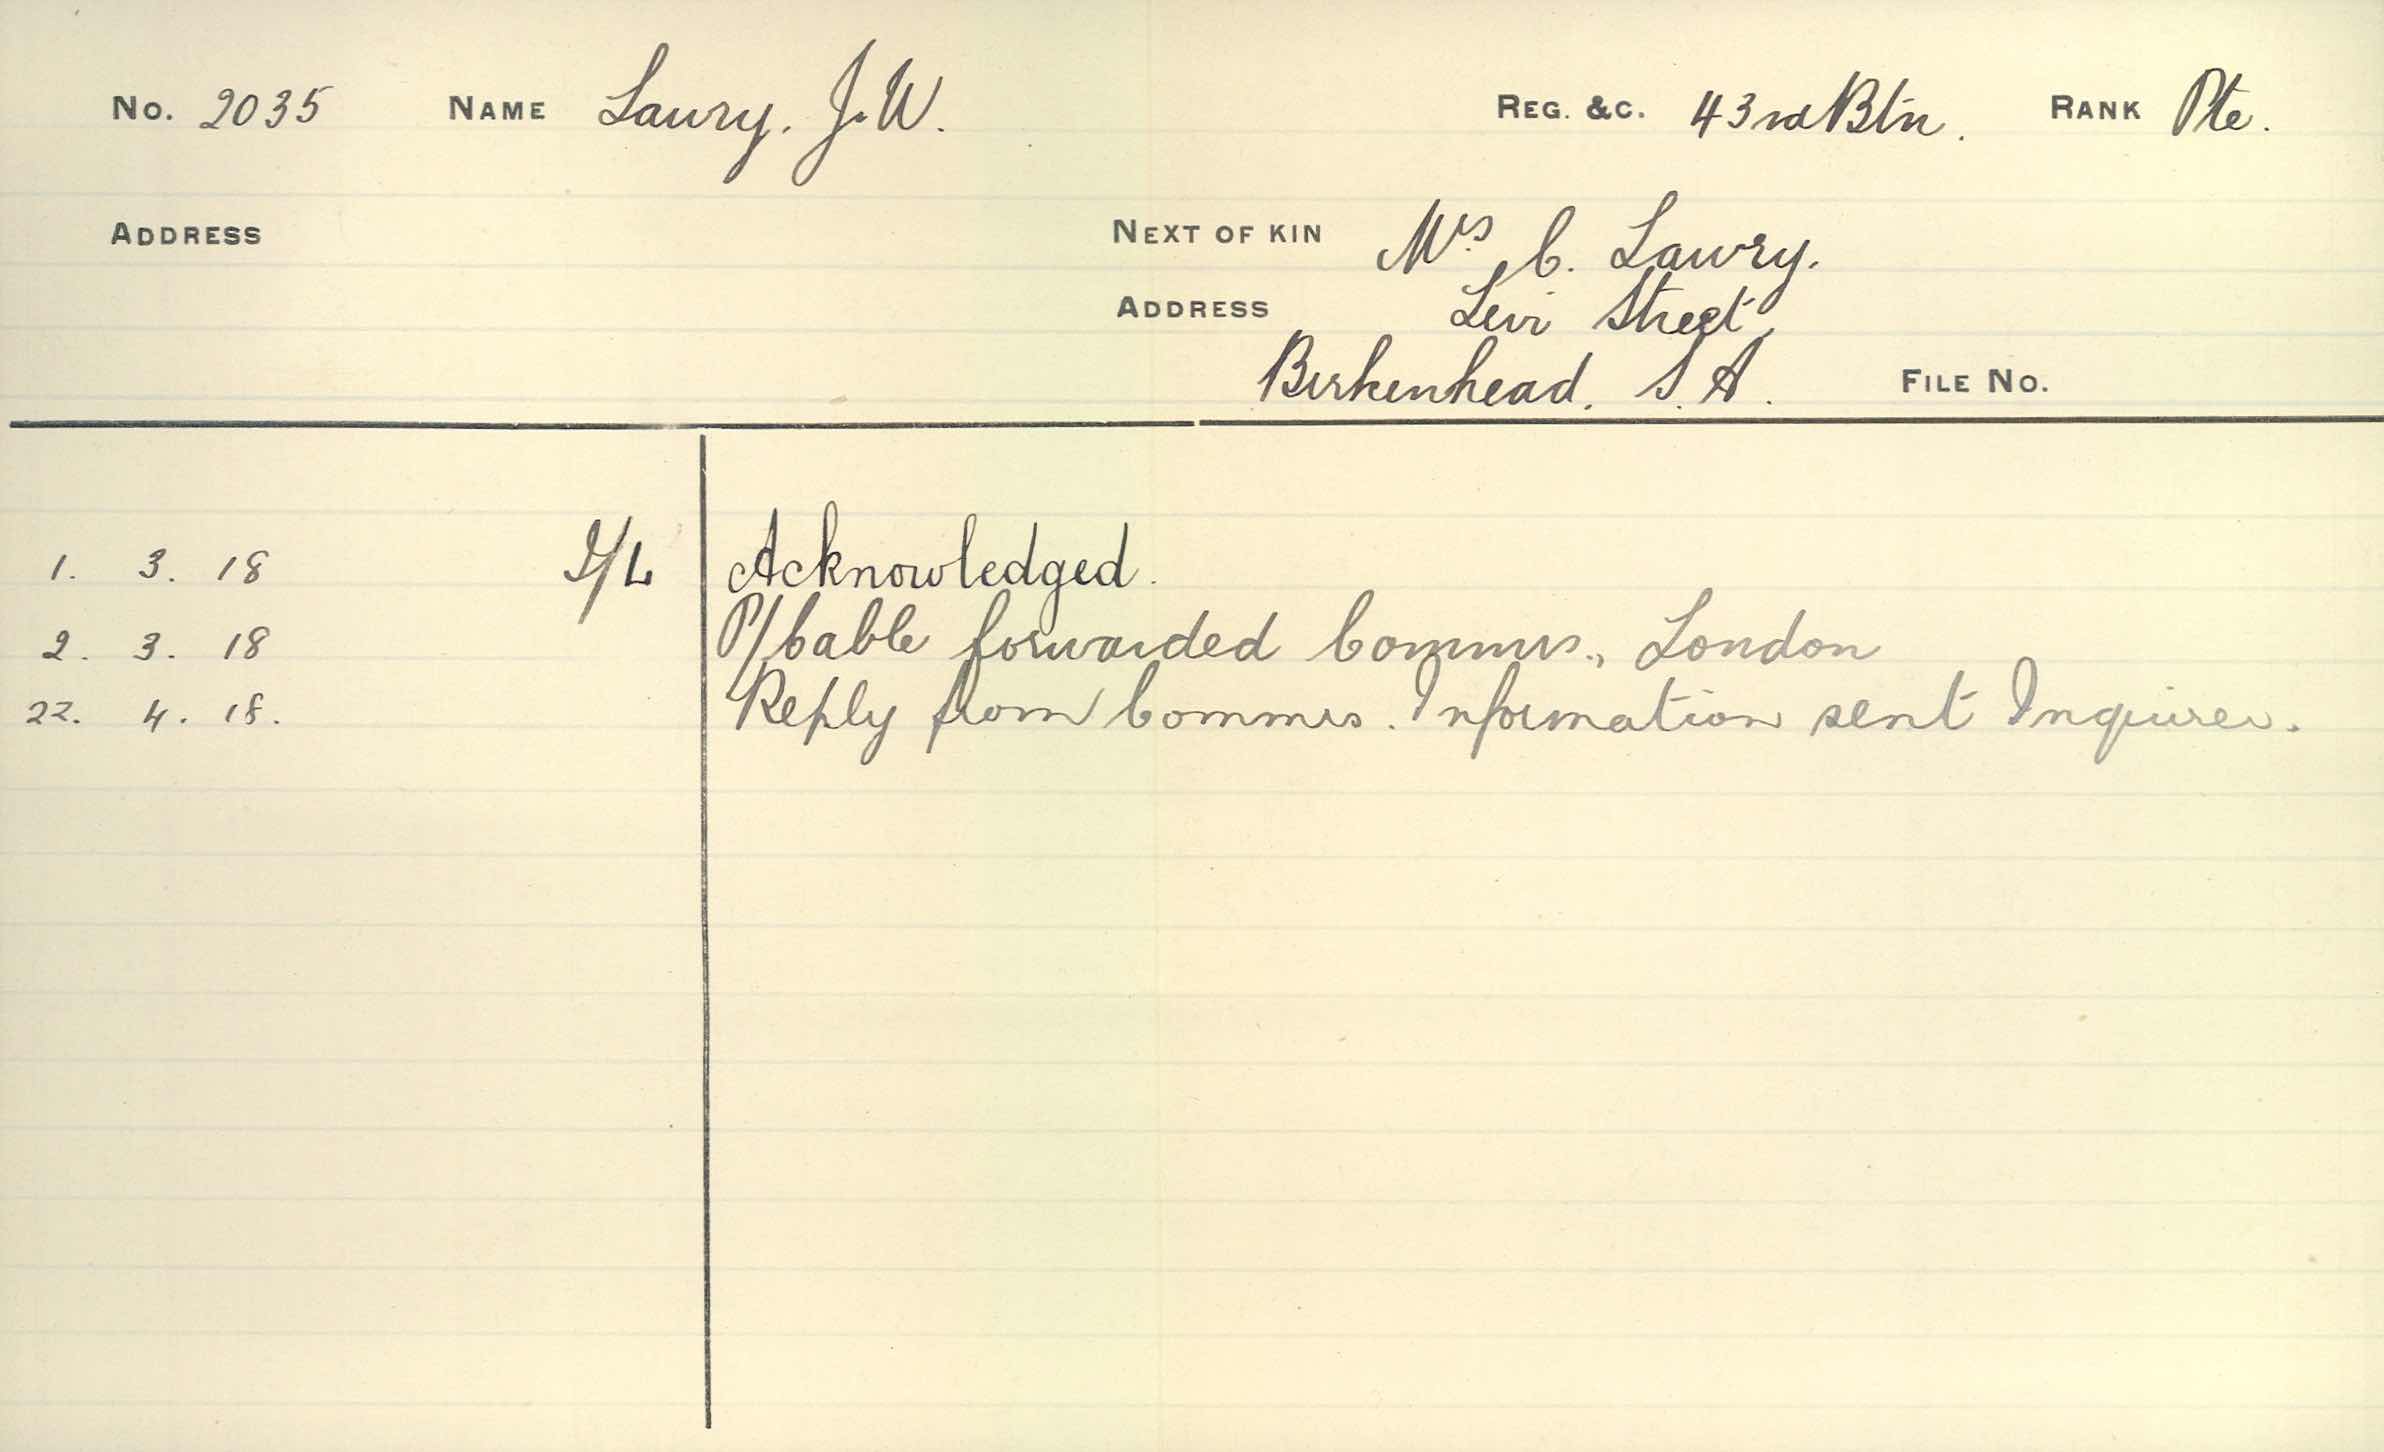 No. 2035 NAME Lawry. J. W. REG. &C. 43rd Btn. RANK Pte.
ADDRESS NEXT OF KIN Mrs C. Lawry.
ADDRESS Levi Street,
Birkenhead. S. A. FILE No.
1. 3. 18 I/L Acknowledged.
2. 3. 18 P/Cable forwarded Commrs., London
22. 4. 18. Reply from Commrs. Information sent Inquirer.